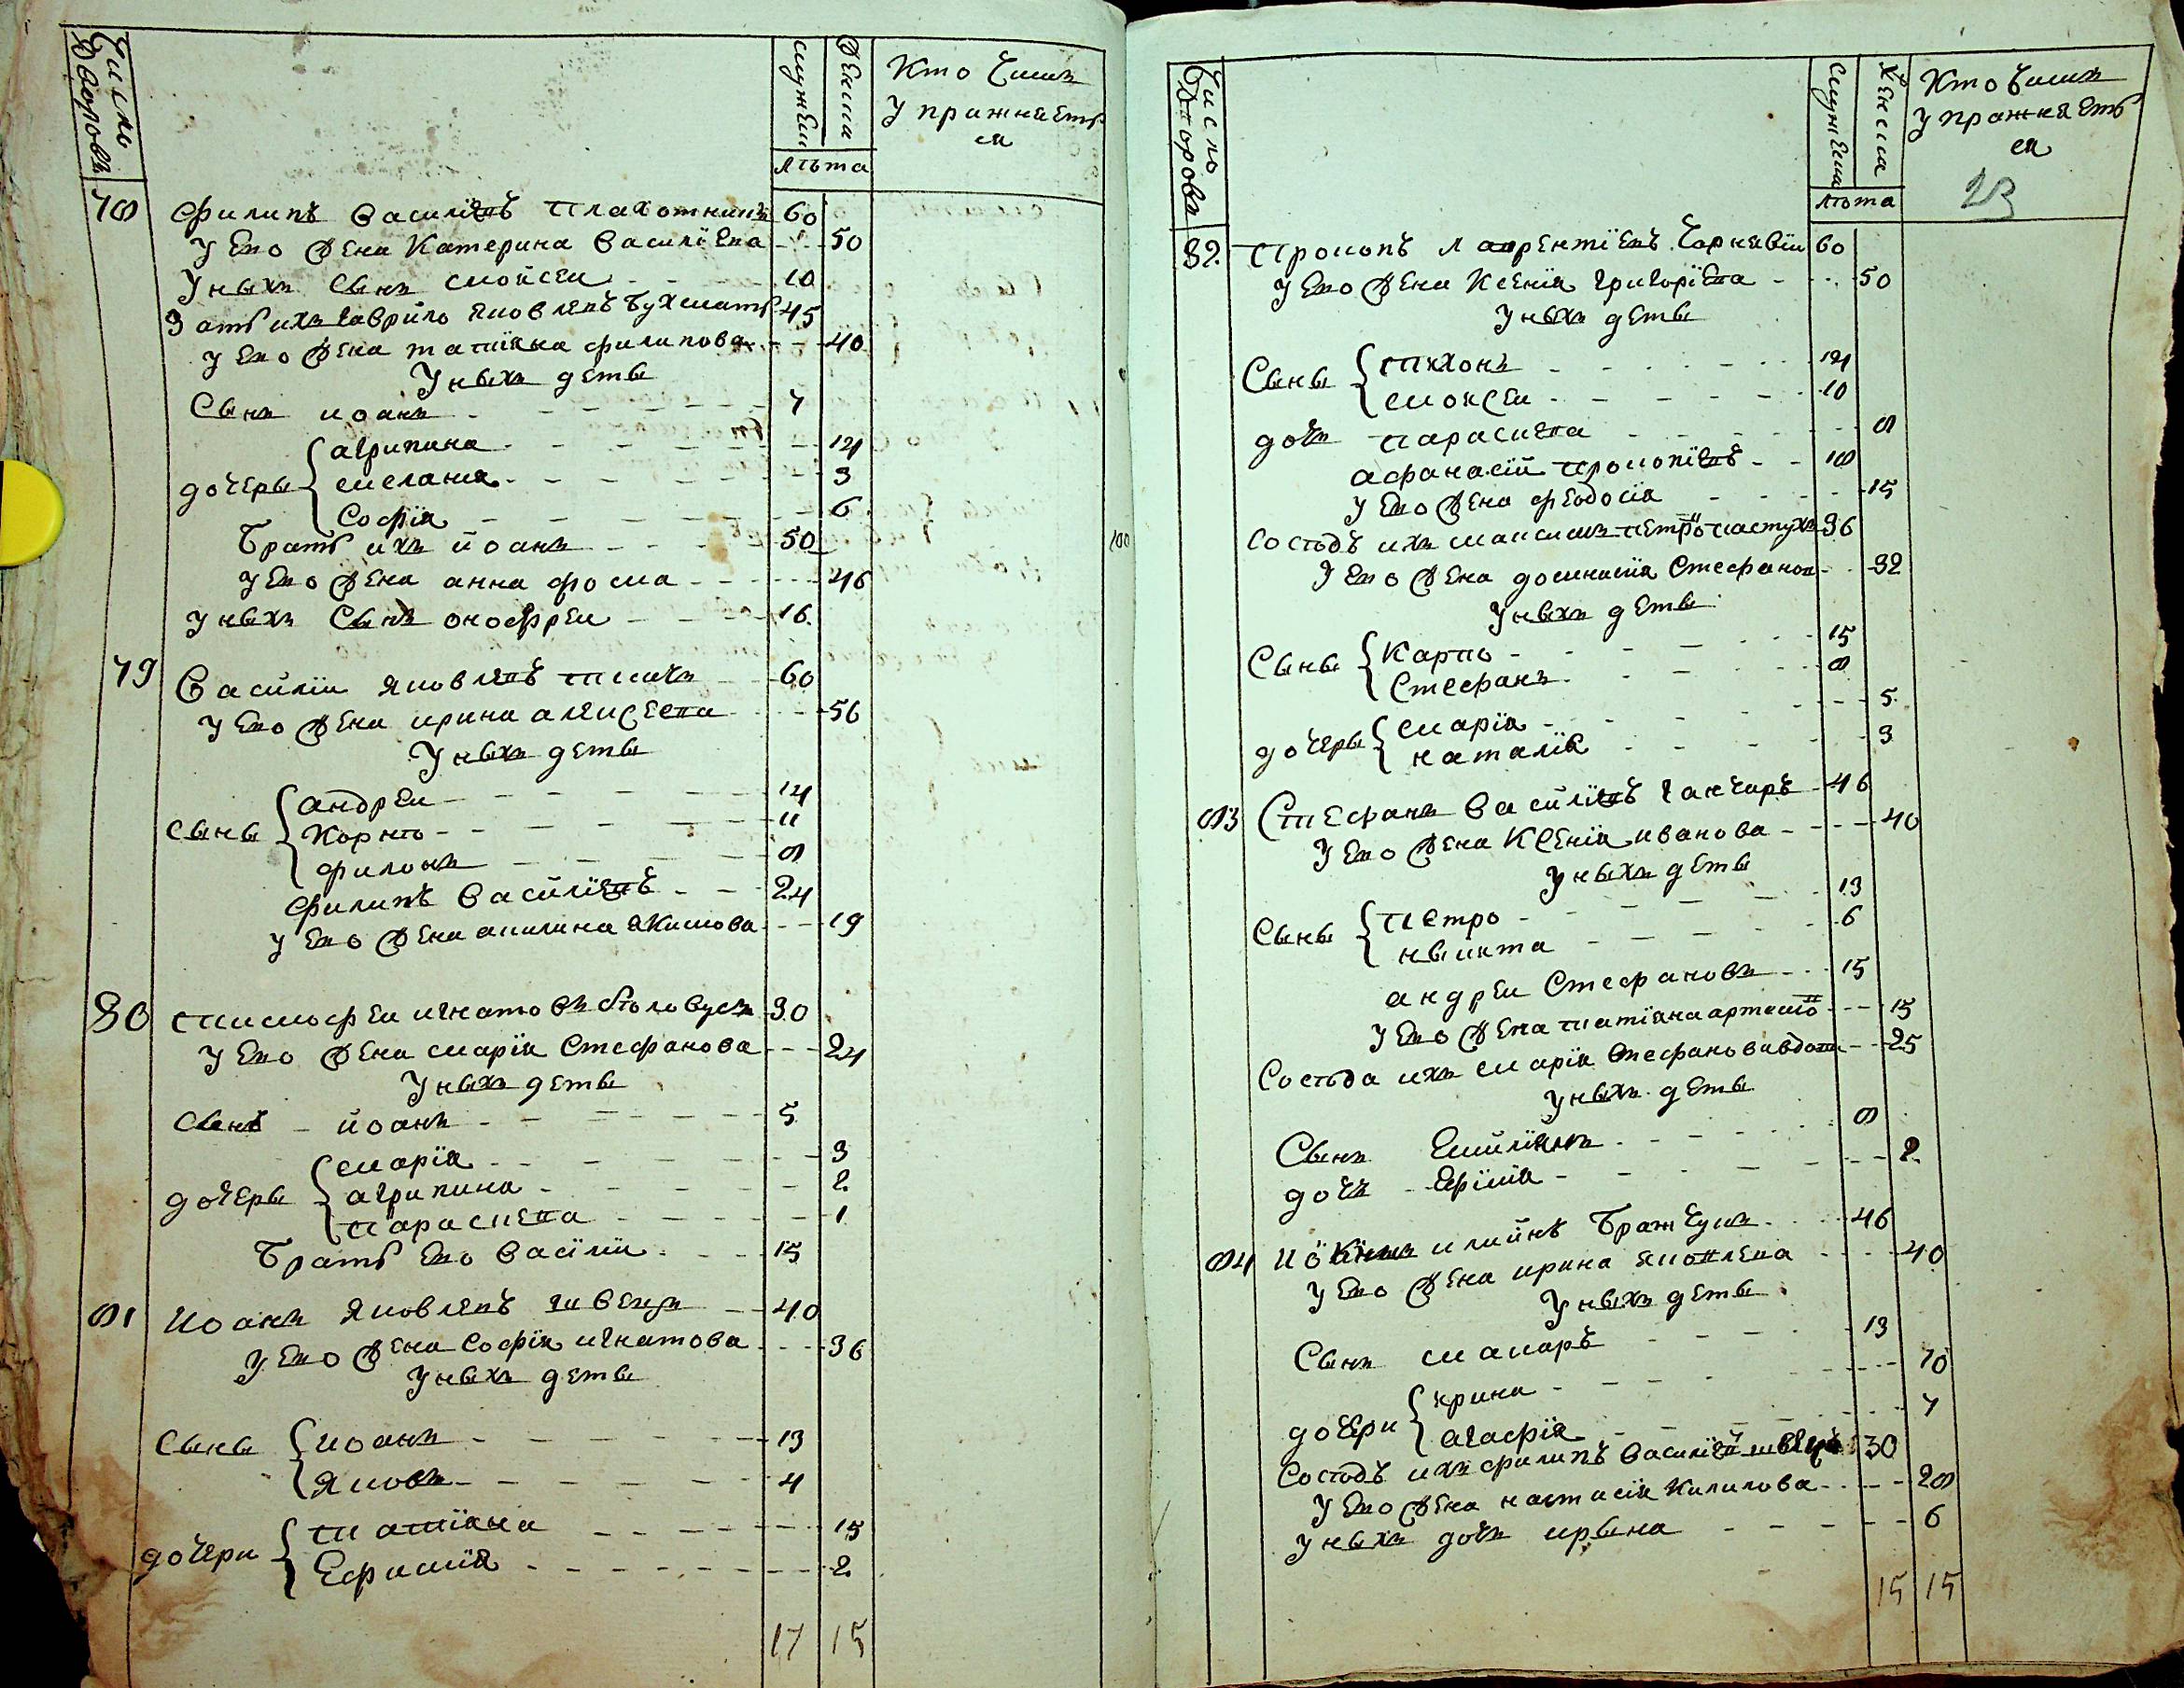 Число Дворовъ
мужеска
женска
лѣта
Кто Чимъ
Упражняеть
ся
78 Филипъ Василіевъ Плахотникъ 60
У его жена Катерина Василіева 50
У ныхъ Сынъ Моисеи 10
Зать ихъ Гаврило Яковлевъ Бухмать 45
У его жена татіана филипова 40
У ныхъ дети
Сынъ иоанъ 7
дочеры агрипина 12
мелания 3
Софія 6
Брать ихъ иоанъ 50
У его жена анна фома 46
У ныхъ Сынъ онофреи 16
79 Василіи яковлевъ 60
У его жена ирина алексеева 56
У ныхъ дети
Сыны андреи 14
Корнто 11
филонъ 8
Филипъ Василіевъ 24
У его жена акилина якимова 19
80 Тимофеи игнатовъ 30
У его жена марія Стефанова 24
У ныхъ дети
Сынъ иоанъ 5
дочеры марія 3
агрипина 2
параскева 1
Брать его Василіи 15
81 Иоанъ Яковлевъ швецъ 40
У его жена Софія игнатова 36
У ныхъ дети
Сыны иоанъ 13
Яковъ 4
дочери татіана 15
Ефимія 2
17 15
Число Дворовъ
мужеска
женска
лѣта
Кто Чимъ
Упражняеть
ся
23
82 Прокопъ Лаврентіевъ Чорнявіи 60
У его жена Ксенія григоріева 50
У ныхъ дети
Сыны тихонъ 12
моисеи 10
дочь параскева 8
афанасіи прокопіевъ 18
У его жена феодосія 15
Сосѣдъ ихъ максимъ петро пастухъ 36
У его жена домникія Стефанов 32
У ныхъ дети
Сыны Карпо 15
Стефанъ 8
дочеры марія 5
наталія 3
83 Стефанъ Василіевъ ганчаръ 46
У его жена Ксенія иванова 40
У ныхъ дети
Сыны петро 13
ныкита 6
андреи Стефановъ 15
У его жена татіана артемо 15
Сосѣда ихъ марія Стефанова вдова 25
У ныхъ дети
Сынъ Емиліянъ 8
дочъ Ефімія 2
84 илиинъ Бражчукъ 46
У его жена ирина яковлева 40
У ныхъ дети
Сынъ макаръ 13
дочери ирина 10
агафія 7
Сосѣдъ ихъ филипъ Василіев швецъ 30
У его жена настасія Кирилова 28
У ныхъ дочь ирына 6
15 15